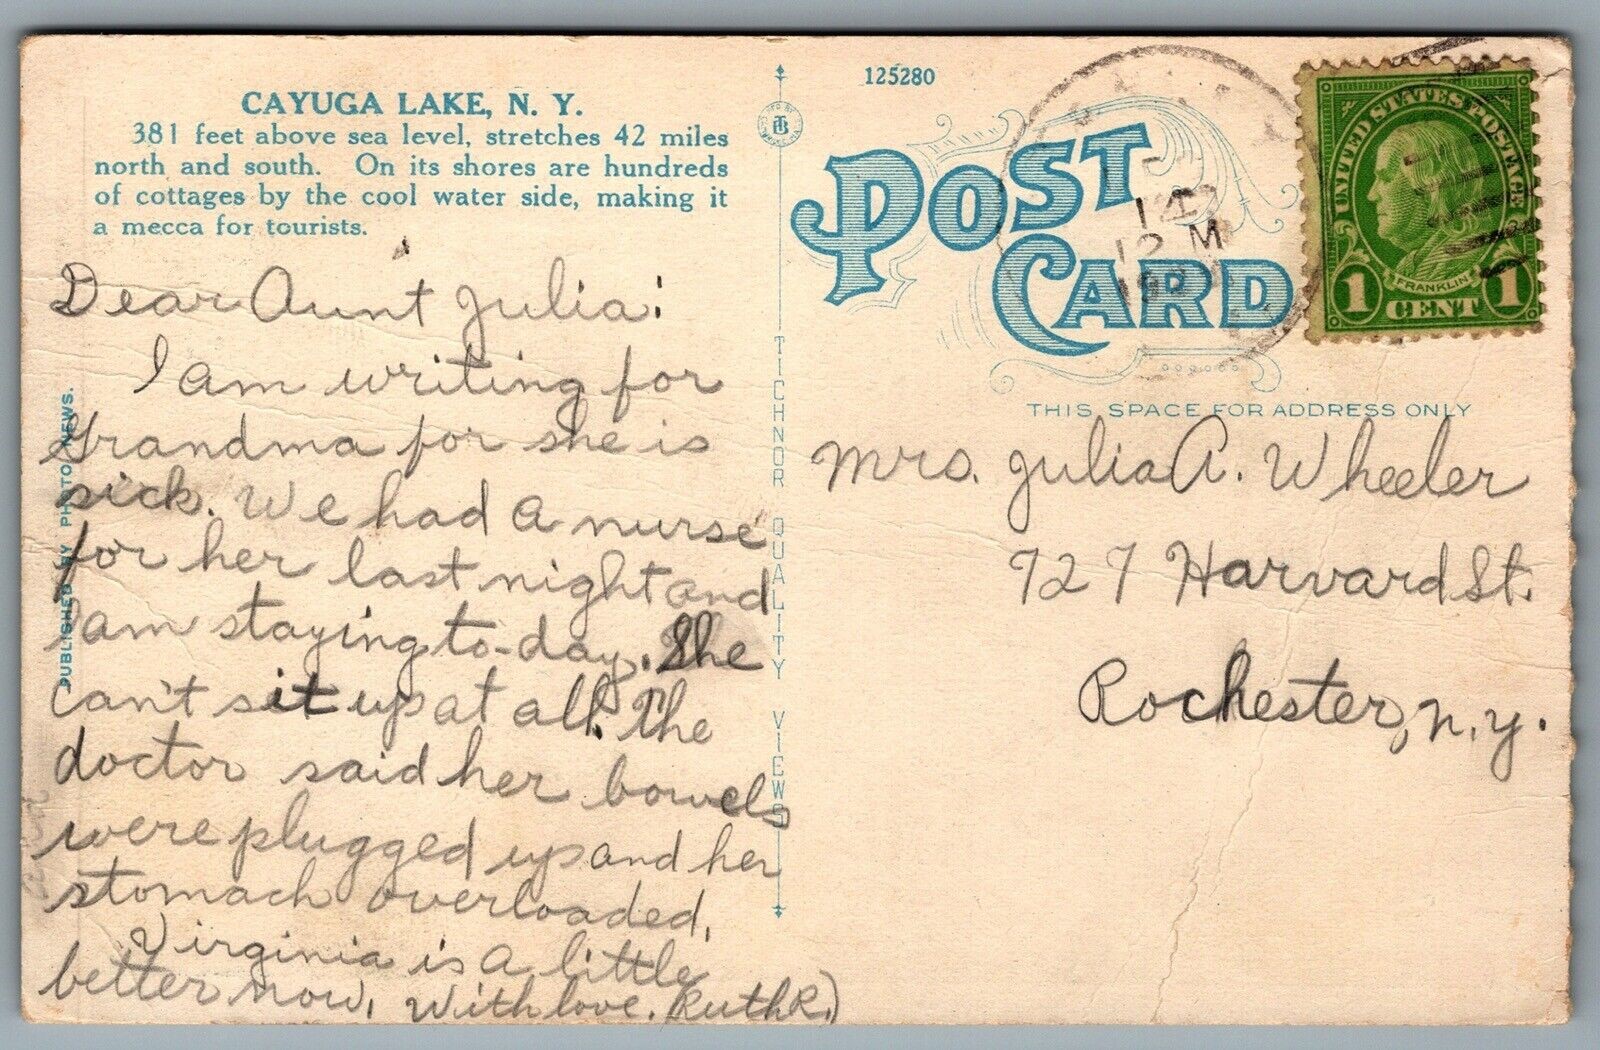 CAYUGA LAKE, N. Y.
381 feet above sea level, stretches 42 miles
north and south. On its shores are hundreds
of cottages by the cool water side, making it
a mecca for tourists.
Dear Aunt Julia:
I am writing for
Grandma for she is
sick. We had a nurse
for her last night and
I am staying to-day. She
can't sit up at all. The
doctor said her bowels
were plugged up and her
stomach overloaded.
Virginia is a little
better now. With love. Ruth R.)
PUBLISHED BY PHOTO NEWS.
TICHNOR QUALITY VIEWS
125280
POST CARD
THIS SPACE FOR ADDRESS ONLY
14
12 M
UNITED STATES POSTAGE
FRANKLIN
1 CENT 1
Mrs. Julia A. Wheeler
727 Harvard St.
Rochester, N. Y.